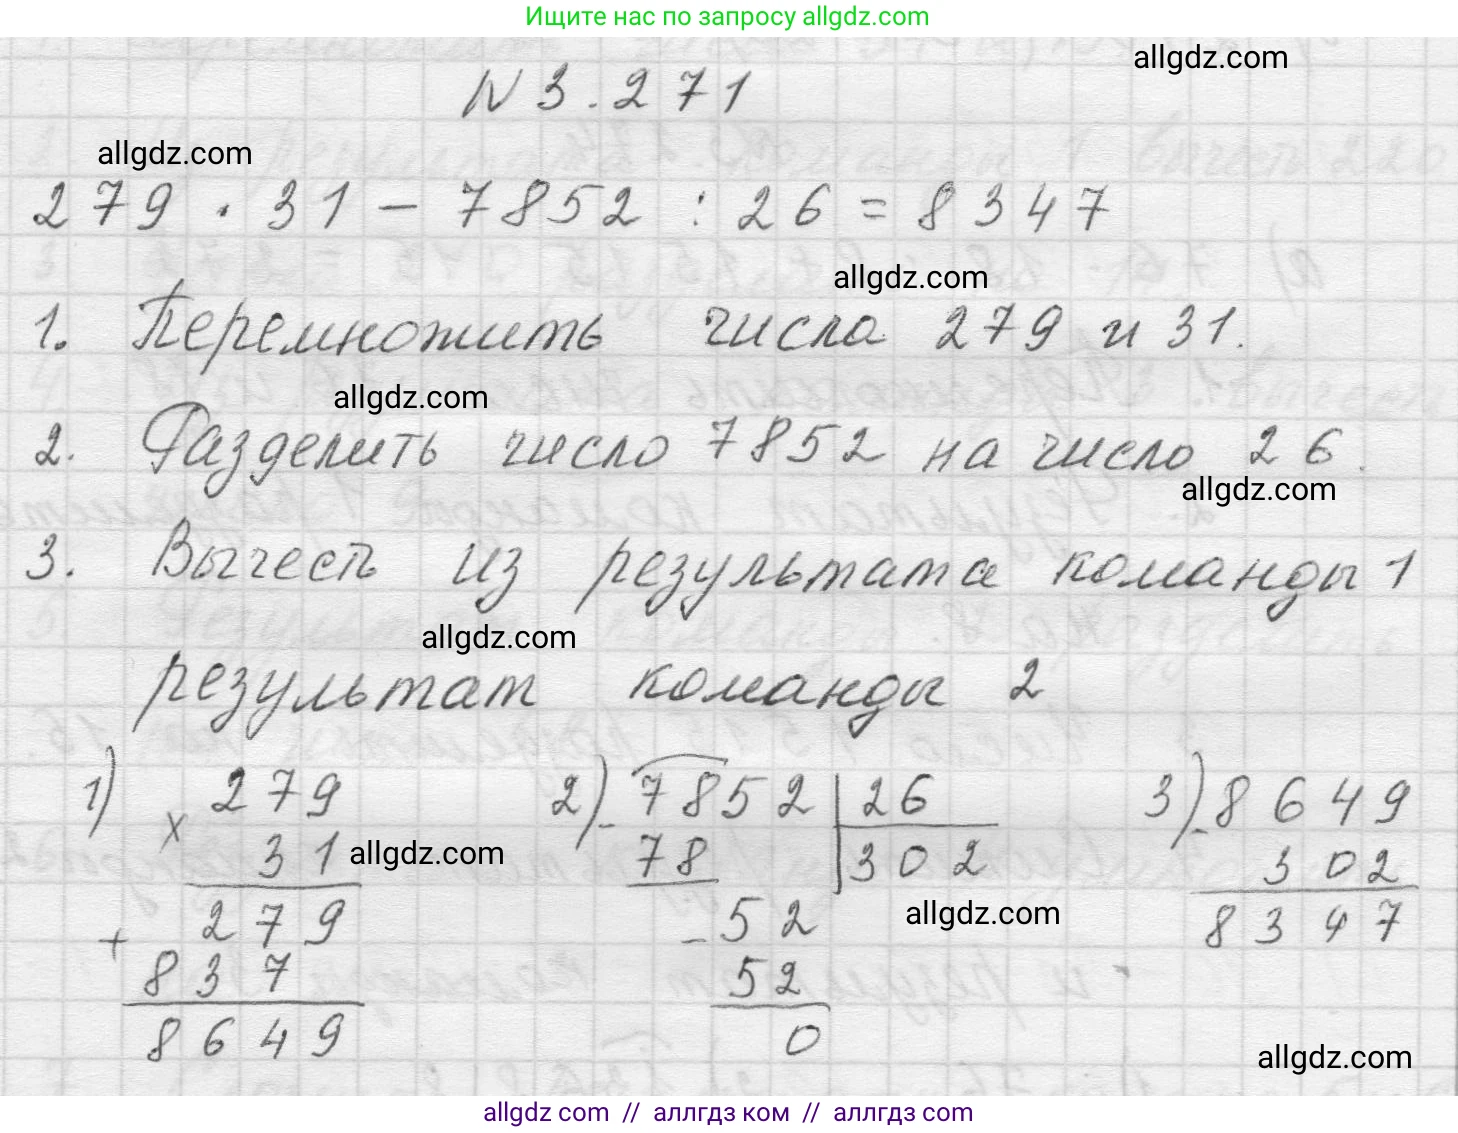 Ищите нас по запросу allgdz.com
allgdz.com
N 3.271
allgdz.com
279 · 31 – 7852 : 26 = 8347
allgdz.com
1. Перемножить числа 279 и 31.
allgdz.com
2. Разделить число 7852 на число 26.
allgdz.com
3. Вычесть из результата команды 1
allgdz.com
результат команды 2
1) 279
x 31
279
+ 837
8649
allgdz.com
2) – 7852 | 26
78 302
– 52
52
0
allgdz.com
3) – 8649
302
8347
allgdz.com
allgdz com // аллгдз ком // аллгдз com